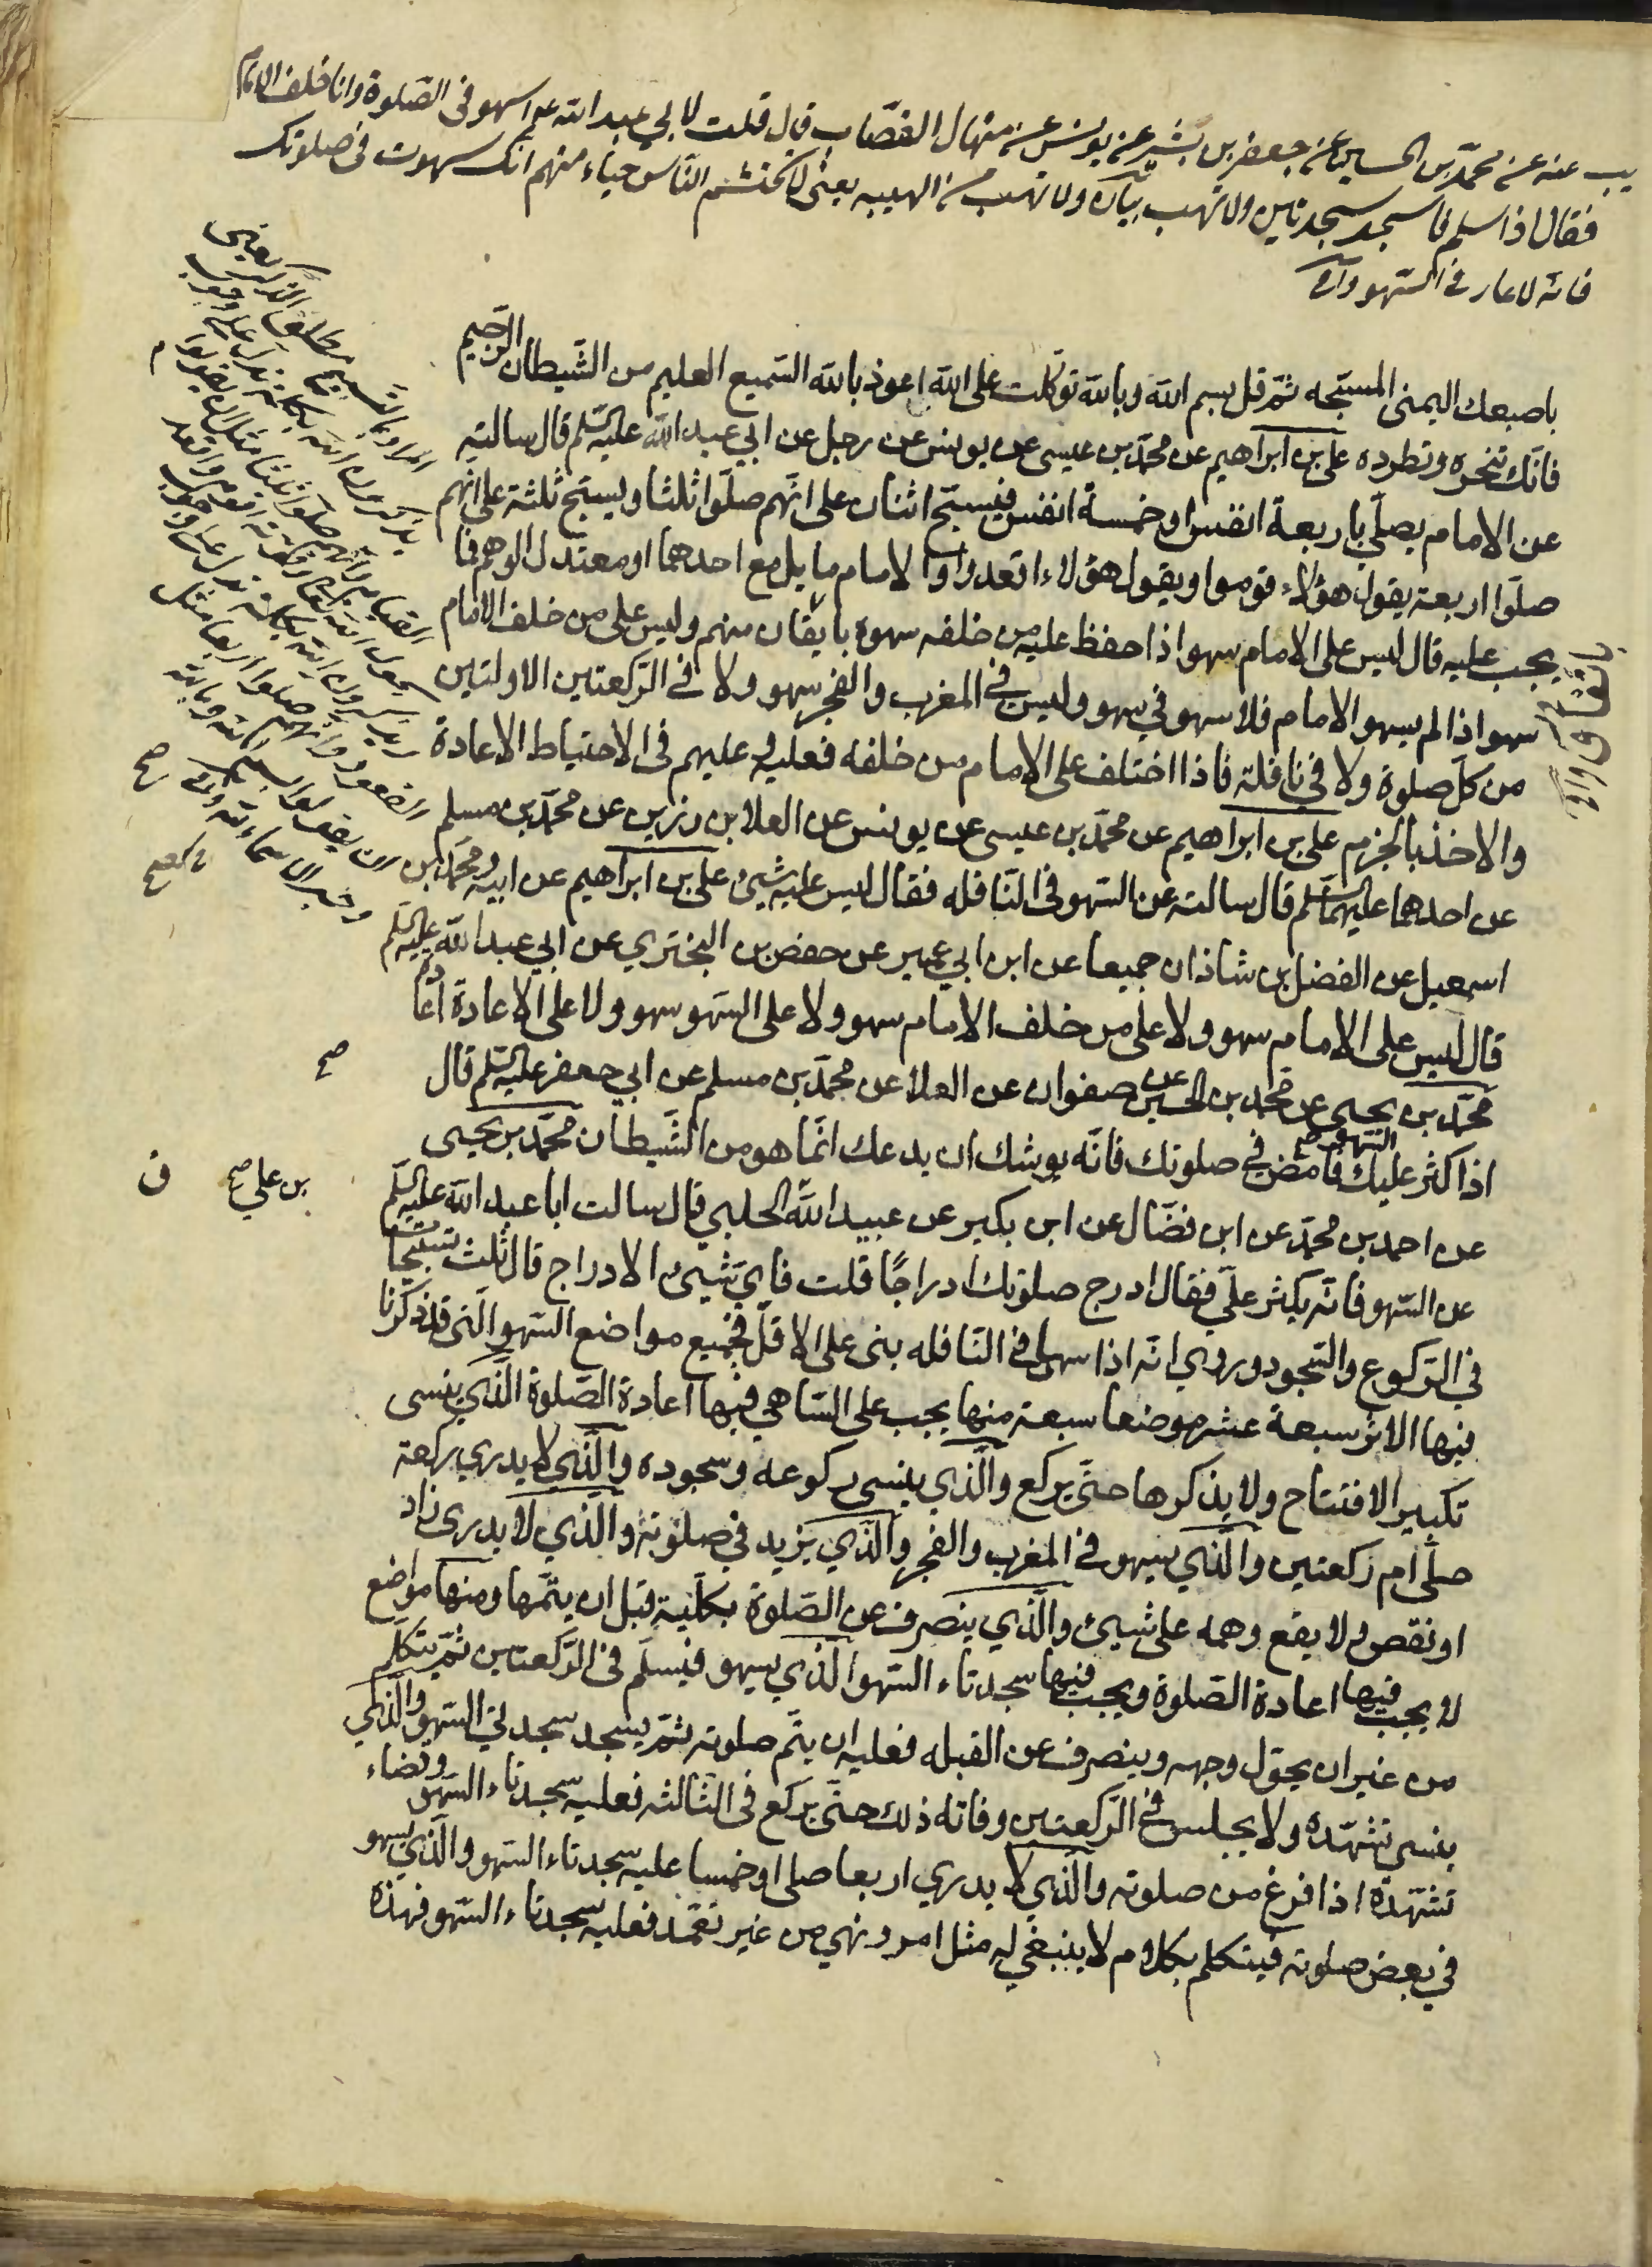 يب عنه عن محمد بن الحسين عن جعفر بن بشير عن يونس عن منهال القصاب قال قلت لابي عبد الله عم اسهو فى الصلوة وانا خلف الامام
فقال اذا سلم فاسجد سجدتين ولا تهب بيان ولا تهب من الهيبه يعنى لا تحتشم الناس حياء منهم انك سهوت فى صلوتك
فانه لا عار فى السهو وافى
باصبعك اليمنى المسبحه ثم قل بسم الله وبالله توكلت على الله اعوذ بالله السميع العليم من الشيطان الرجيم
فانك تنحره وتطرده على بن ابراهيم عن محمد بن عيسى عن يونس عن رجل عن ابي عبد الله عليه السلم قال سالته
عن الامام يصلي باربعة انفس او خمسة انفس فيسبح اثنان على انهم صلوا ثلثا ويسبح ثلثة على انهم
صلوا اربعة يقول هؤلاء قوموا ويقول هؤلاء اقعدوا والامام مايل مع احدهما او معتدل الوهم فما
يجب عليه قال ليس على الامام سهو اذا حفظ عليه من خلفه سهوه بايقان منهم وليس على من خلف الامام
سهو اذا لم يسهو الامام فلا سهو في سهو وليس في المغرب والفجر سهو ولا فى الركعتين الاولتين
من كل صلوة ولا في نافلة فاذا اختلف على الامام من خلفه فعليه و عليهم فى الاحتياط الاعادة
والاخذ بالجزم على بن ابراهيم عن محمد بن عيسى عن يونس عن العلا بن رزين عن محمد بن مسلم
عن احدهما عليهما السلم قال سالته عن السهو فى النافله فقال ليس عليه شيئ على بن ابراهيم عن ابيه ومحمد بن
اسمعيل عن الفضل بن شاذان جميعا عن ابن ابي عمير عن حفص بن البختري عن ابي عبد الله عليه السلم
قال ليس على الامام سهو ولا على من خلف الامام سهو ولا على السهو سهو ولا على الاعادة اعادة
محمد بن يحيى عن محمد بن الحسين عن صفوان عن العلا عن محمد بن مسلم عن ابي جعفر عليه السلم قال
اذا كثر عليك السهو فامض في صلوتك فانه يوشك ان يدعك انما هو من الشيطان محمد بن يحيى
عن احمد بن محمد عن ابن فضال عن ابن بكير عن عبيد الله الحلبي قال سالت ابا عبد الله عليه السلم
بن على صح
عن السهو فانه يكثر علي فقال ادرج صلوتك ادراجا قلت فاي شيئ الادراج قال ثلث تسبيحات
في الركوع والسجود وروي انه اذا سهى فى النافله بنى على الاقل فجميع مواضع السهو التى قد ذكرنا
فيها الاثر سبعة عشر موضعا سبعة منها يجب على الساهي فيها اعادة الصلوة الذي ينسى
تكبير الافتتاح ولا يذكرها حتى يركع والذي ينسى ركوعه وسجوده والذي لا يدري ركعة
صلى ام ركعتين والذي يسهو فى المغرب والفجر والذي يزيد في صلوته والذي لا يدرى زاد
او نقص ولا يقع وهمه على شيئ والذي ينصرف عن الصلوة بكلية قبل ان يتمها ومنها مواضع
لا يجب فيها اعادة الصلوة ويجب فيها سجدتاء السهو الذي يسهو فيسلم فى الركعتين ثم يتكلم
من غير ان يحول وجهه وينصرف عن القبله فعليه ان يتم صلوته ثم يسجد سجدتي السهو والذي
ينسى تشهده ولا يجلس فى الركعتين وفاته ذلك حتى يركع فى الثالثه فعليه سجدتاء السهو وقضاء
تشهده اذا فرغ من صلوته والذي لا يدري اربعا صلى او خمسا عليه سجدتاء السهو والذي يسهو
في بعض صلوته فيتكلم بكلام لا ينبغي له مثل امر ونهي من غير تعمد فعليه سجدتاء السهو فهذه